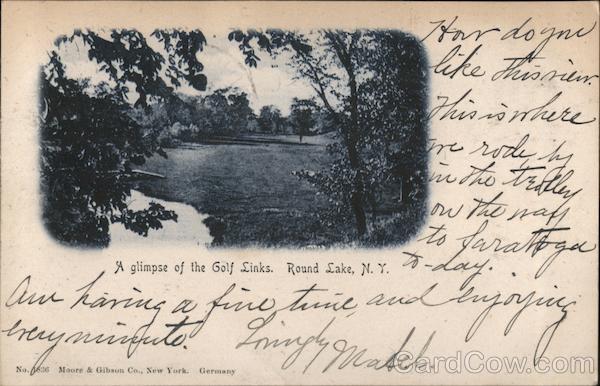 How do you
like this view.
This is where
we rode by
in the trolley
on the way
to Saratoga
to-day.
A glimpse of the Golf Links. Round Lake, N. Y.
Am having a fine time and enjoying
every minute. Lovingly Mabel.
No. 1836 Moore & Gibson Co., New York. Germany
CardCow.com